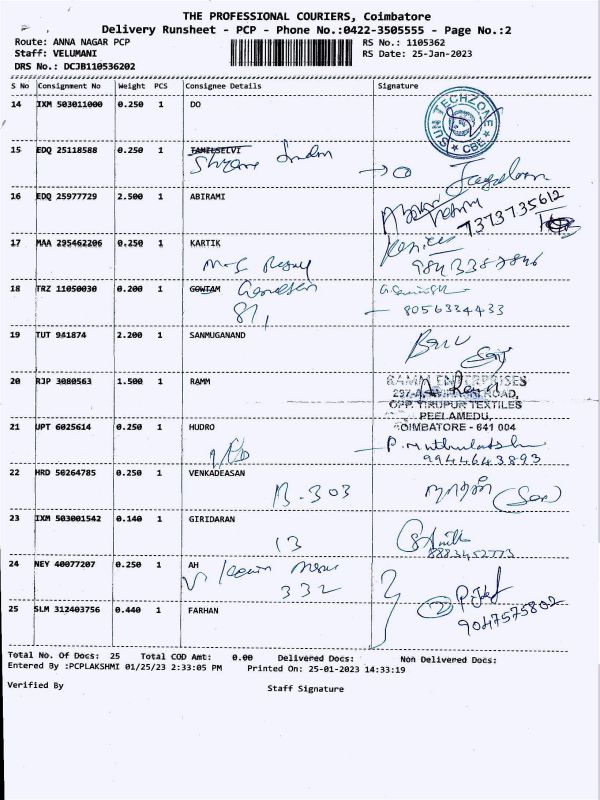 THE PROFESSIONAL COURIERS, Coimbatore
Delivery Runsheet - PCP - Phone No.:0422-3505555 - Page No.:2
Route: ANNA NAGAR PCP RS No.: 1105362
Staff: VELUMANI RS Date: 25-Jan-2023
DRS No.: DCJB110536202
S No Consignment No Weight PCS Consignee Details Signature
14 IXM 503011000 0.250 1 DO
SUN TECHZONE CBE
15 EDQ 25118588 0.250 1 TAMILSELVI
16 EDQ 25977729 2.500 1 ABIRAMI
7373735612
17 MAA 295462206 0.250 1 KARTIK
18 TRZ 11050030 0.200 1 GOWTAM
81,
8056334433
19 TUT 941874 2.200 1 SANMUGANAND
20 RJP 3080563 1.500 1 RAMM
RAMM ENTERPRISES
OPP. TIRUPUR TEXTILES
PEELAMEDU,
COIMBATORE - 641 004
21 UPT 6025614 0.250 1 HUDRO
9944643893
22 HRD 50264785 0.250 1 VENKADEASAN
B.303
23 IXM 503001542 0.140 1 GIRIDARAN
13
8883452773
24 NEY 40077207 0.250 1 AH
332
25 SLM 312403756 0.440 1 FARHAN
2
9047575802
Total No. Of Docs: 25 Total COD Amt: 0.00 Delivered Docs: Non Delivered Docs:
Entered By :PCPLAKSHMI 01/25/23 2:33:05 PM Printed On: 25-01-2023 14:33:19
Verified By Staff Signature